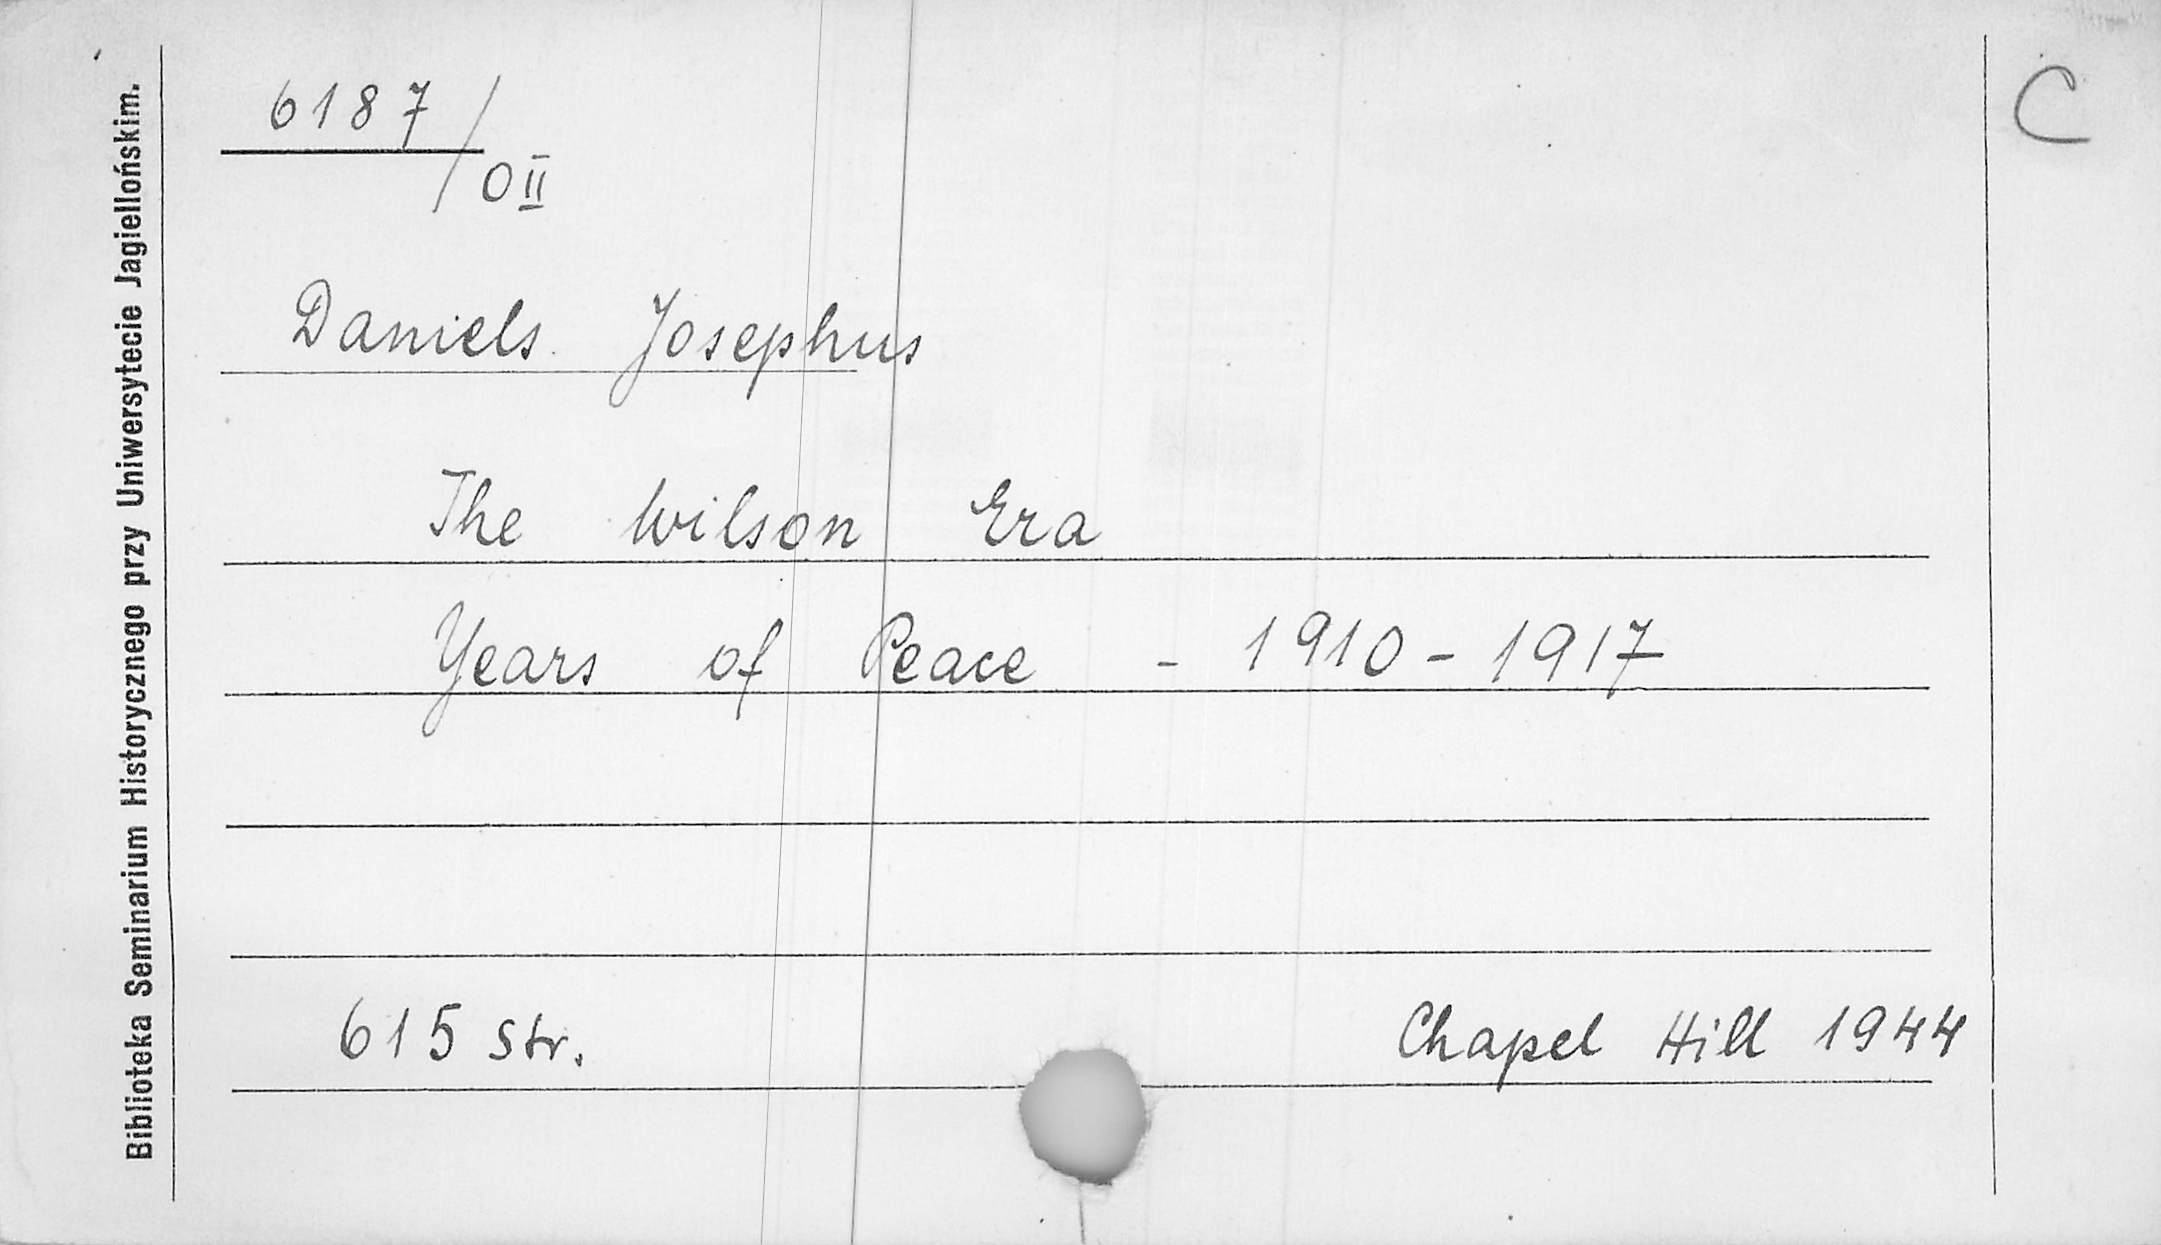 6187/OII
C
Daniels Josephus
The Wilson Era
Years of Peace - 1910-1917
615 str.
Chapel Hill 1944
Biblioteka Seminarium Historycznego przy Uniwersytecie Jagiellońskim.